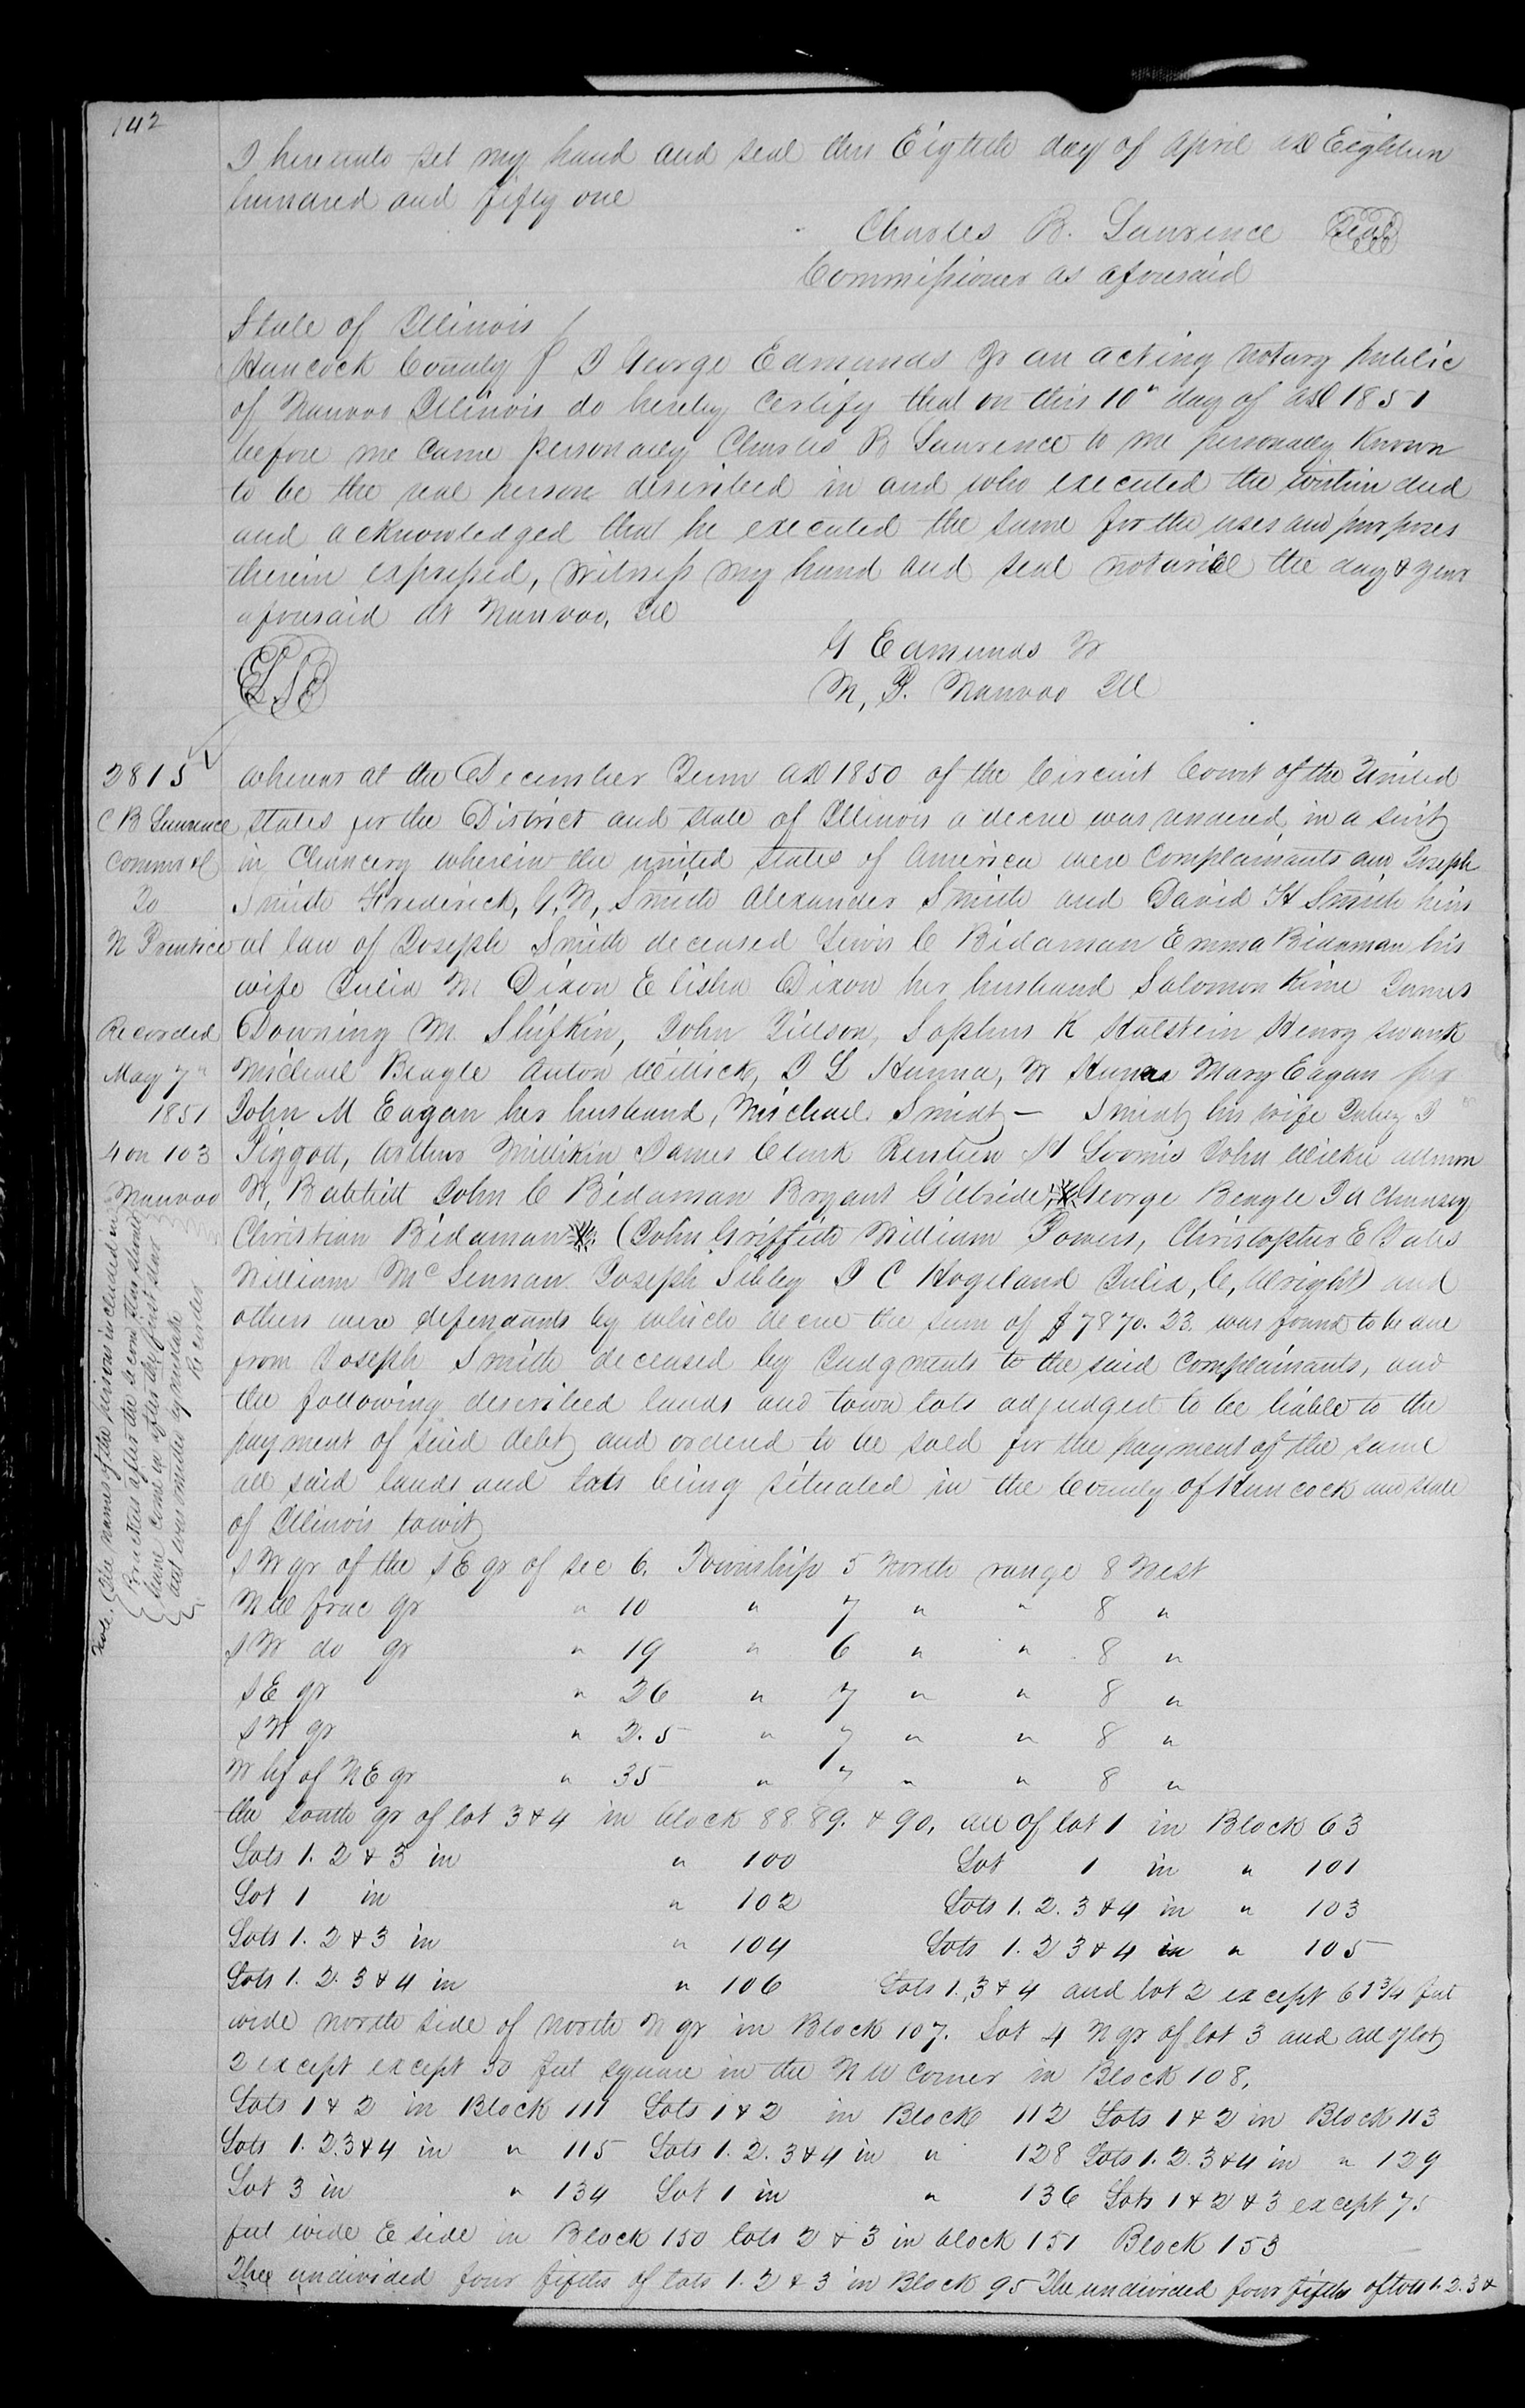 142
I hereunto set my hand and seal this Eighth day of April AD Eighteen
hundred and fifty one
Charles B. Lawrence Seal
Commissioner as aforesaid
State of Illinois
Hancock County I George Edmunds Jr an acting notary public
of Nauvoo Illinois do hereby Certify that on this 10" day of AD 1851
before me came personally Charles B Lawrence to me personally Known
to be the real person described in and who executed the within deed
and acknowledged that he executed the same for the uses and purposes
therein expressed, witness my hand and seal notarial the day & year
aforesaid at Nauvoo, Ill
G Edmunds Jr
N, P. Nauvoo Ill
2815
C B Lawrence
Commr &c
To
N Prentice
Recorded
May 7"
1851
4 on 103
Nauvoo
Note. The names of the persons included in
Brackets after the second star should
have come in after the first star
but was omitted by mistake
Recorder
Whereas at the December Term AD 1850 of the Circuit Court of the United
states for the District and state of Illinois a decree was rendered in a suit
in Chancery wherein the united states of America were Complainants and Joseph
Smith Frederick, G, W, Smith Alexander Smith and David H Smith heirs
at law of Joseph Smith deceased Lewis C Bidaman Emma Bidaman his
wife Julia M Dixon Elisha Dixon her husband Salomon Kime James
Downing M. Slifkin, John Tillson, Sophus K Halstein Henry Swank
Michael Beagle Anton Willick, D L Hanna, W Hanna Mary Eagan
John M Eagan her husband, Michael Smidt — Smidt his wife
Piggott, Arthur Millikin James Clark Reuben H Loomis John Wilkie Almon
W, Babbitt John C Bidaman Bryant Gilbride, * George Beagle Chauncey
Christian Bidaman * (John Griffith William Powers, Christopher E Yates
William McLennan Joseph Sibley J C Hogeland Julia, C, Wright) and
others were defendants by which decree the sum of $7870.23. was found to be due
from Joseph Smith deceased by Judgments to the said complainants, and
the following described lands and town lots adjudged to be liable to the
payment of said debt and ordered to be sold for the payment of the same
all said lands and lots being situated in the County of Hancock and state
of Illinois towit
S W qr of the S E qr of sec 6. Township 5 North range 8 West
N W frac qr " 10 " 7 " " 8 "
S W do qr " 19 " 6 " " 8 "
S E qr " 26 " 7 " " 8 "
S W qr " 25 " 7 " " 8 "
W hf of N E qr " 35 " 7 " " 8 "
the south qr of lot 3 & 4 in block 88 89. & 90, all of lot 1 in Block 63
Lots 1. 2 & 3 in " 100 Lot 1 in " 101
Lot 1 in " 102 Lots 1. 2. 3 & 4 in " 103
Lots 1. 2 & 3 in " 104 Lots 1. 2 3 & 4 in " 105
Lots 1. 2. 3 & 4 in " 106 Lots 1., 3 & 4 and lot 2 except 61 3/4 feet
wide north side of north W qr in Block 107. Lot 4 N qr of lot 3 and all of lot
2 except except 50 feet square in the N W Corner in Block 108,
Lots 1 & 2 in Block 111 Lots 1 & 2 in Block 112 Lots 1 & 2 in Block 113
Lots 1. 2. 3 & 4 in " 115 Lots 1. 2. 3 & 4 in " 128 Lots 1. 2. 3 & 4 in " 129
Lot 3 in " 134 Lot 1 in " 136 Lots 1 & 2 & 3 except 75
feet wide E side in Block 150 lots 2 & 3 in block 151 Block 153
The undivided four fifths of lots 1. 2 & 3 in Block 95 The undivided four fifths of lots 1. 2. 3 &